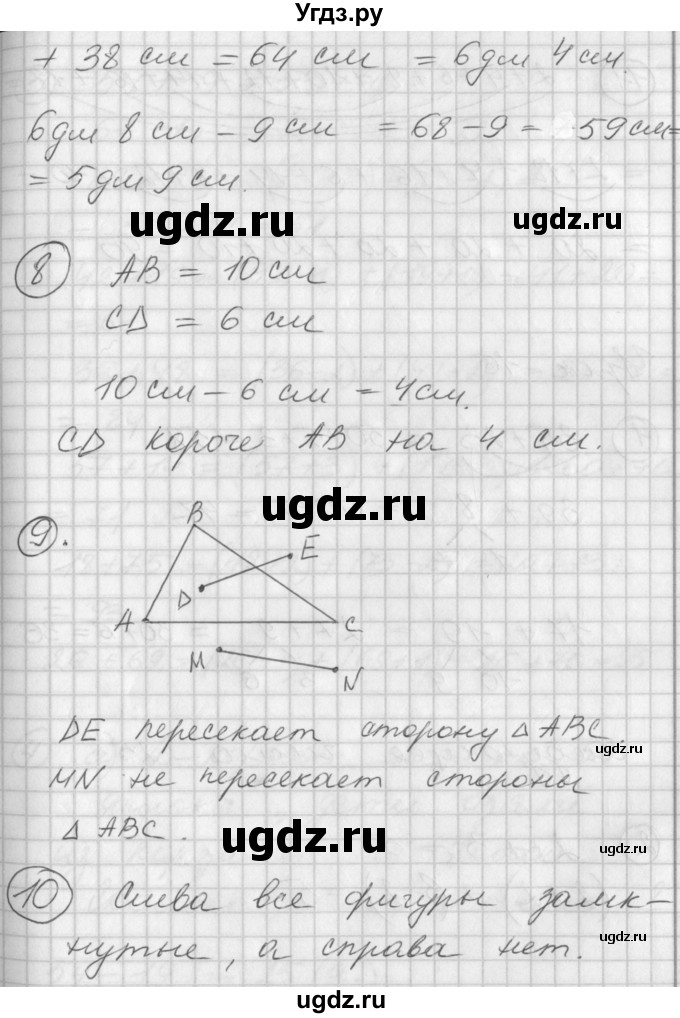 Угдз.ру
+ 38 см = 64 см = 6дм 4 см.
6дм 8 см - 9 см = 68-9 = 59см=
= 5 дм 9 см.
ugdz.ru
8 АВ = 10 см
CD = 6 см
10 см - 6 см = 4см.
CD короче АВ на 4 см.
ugdz.ru
9.
B
E
D
A
C
M
N
DE пересекает сторону △ ABC.
ugdz.ru
MN не пересекает стороны
△ ABC.
ugdz.ru
ugdz.ru
10 Слева все фигуры замк-
нутые, а справа нет.
ugdz.ru
ugdz.ru